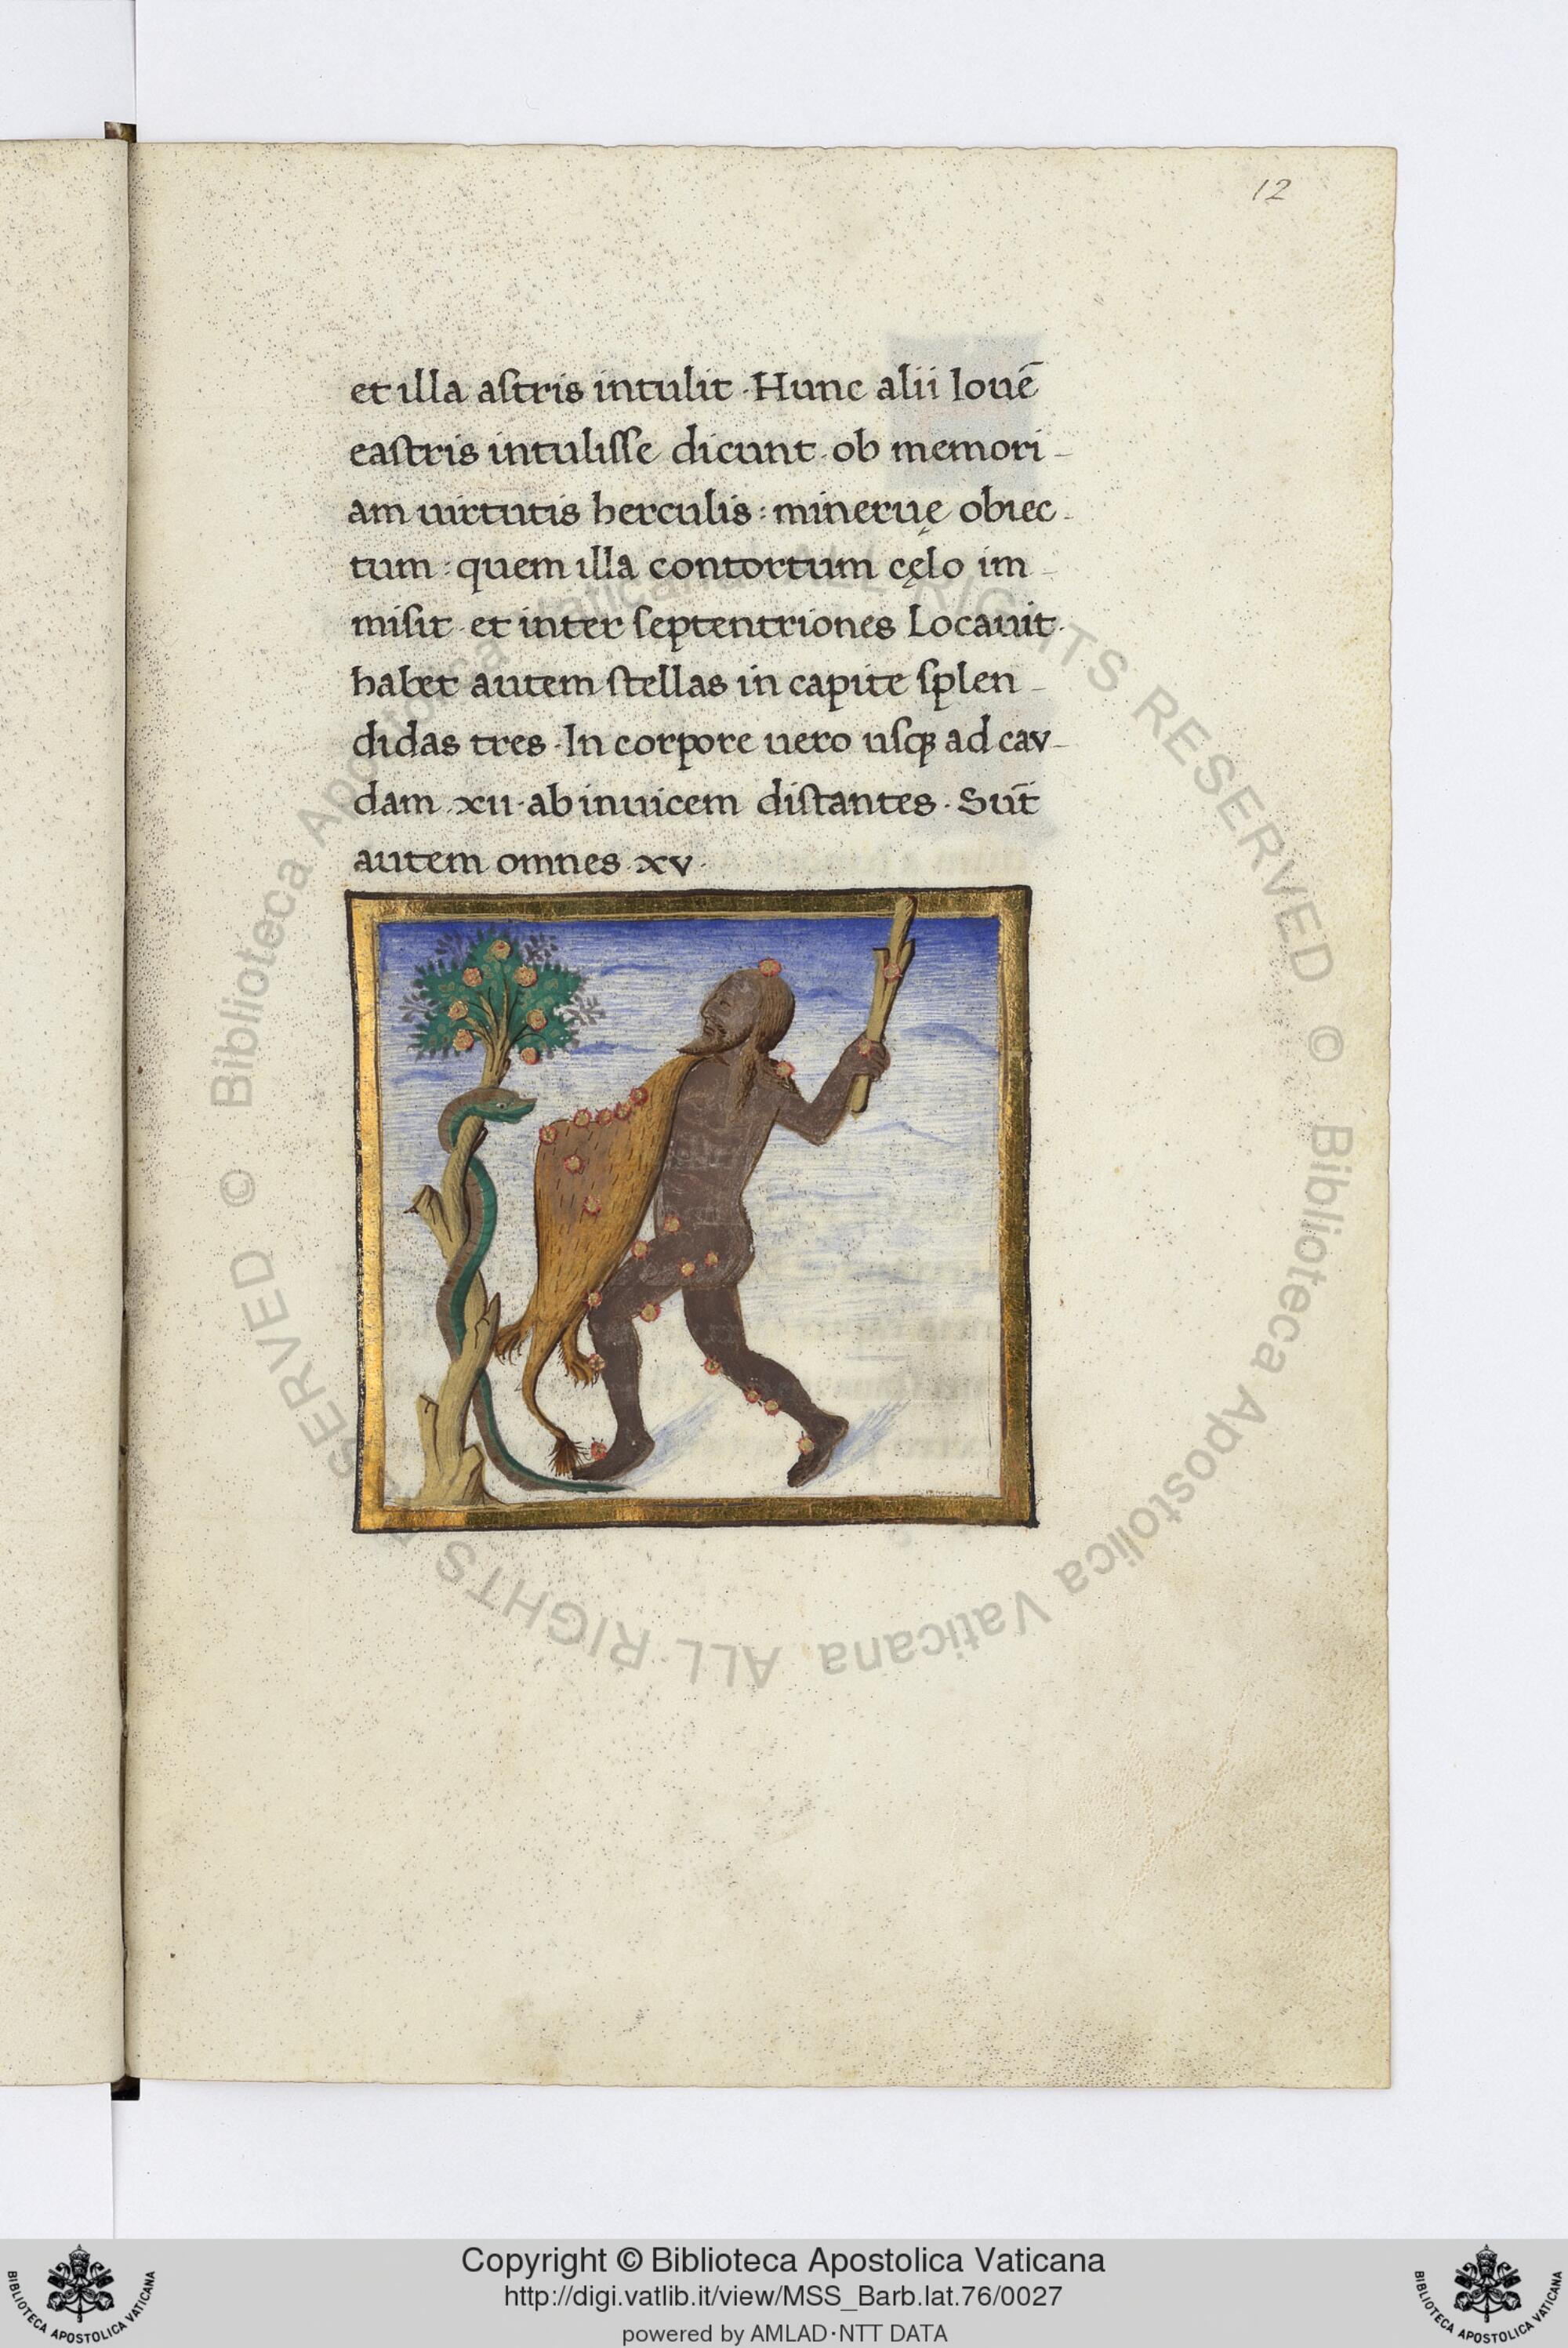 12
et illa astris intulit · Hunc alii Iouē
eastris intulisse dicunt · ob memori-
am uirtutis herculis : mineruę obiec-
tum : quem illa contortum cęlo im-
misit · et inter septentriones Locauit ·
habet autem stellas in capite splen-
didas tres · In corpore uero usqꝫ ad cav-
dam · xii · ab inuicem distantes · Sūt
autem omnes · xv ·
© Biblioteca Apostolica Vaticana ALL RIGHTS RESERVED © Biblioteca Apostolica Vaticana ALL RIGHTS RESERVED
Copyright © Biblioteca Apostolica Vaticana
http://digi.vatlib.it/view/MSS_Barb.lat.76/0027
powered by AMLAD·NTT DATA
BIBLIOTECA APOSTOLICA VATICANA
BIBLIOTECA APOSTOLICA VATICANA